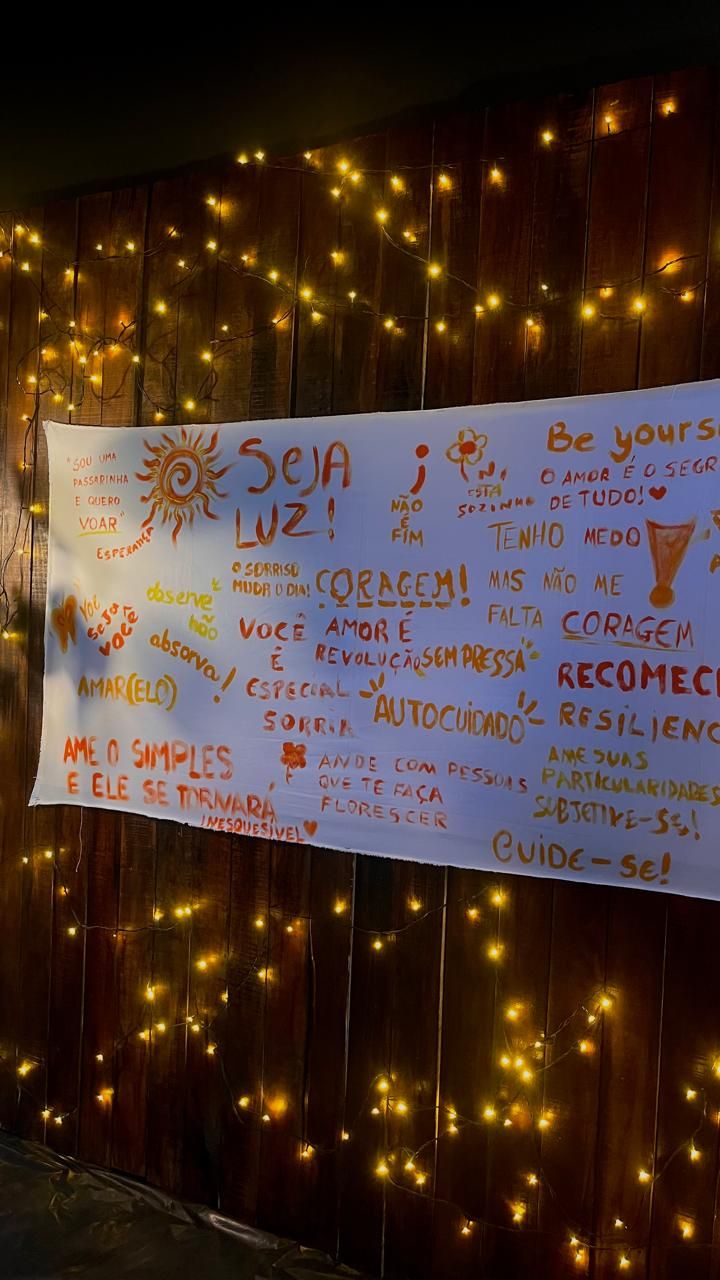 "SOU UMA
PASSARINHA
E QUERO
VOAR"
ESPERANÇA
SEJA
LUZ!
;
NÃO
É
FIM
Ñ
ESTÁ
SOZINHO
Be yours
O AMOR É O SEGR
DE TUDO!
TENHO MEDO
MAS NÃO ME
FALTA CORAGEM
!
VOCÊ
SEJA
VOCÊ
observe
não
absorva!
AMAR(ELO)
O SORRISO
MUDA O DIA!
CORAGEM!
VOCÊ
É
ESPECIAL
SORRIA
AMOR É
REVOLUÇÃO
SEM PRESSA
AUTOCUIDADO
RECOMEC
RESILIENC
AME O SIMPLES
E ELE SE TORNARÁ
INESQUESÍVEL
ANDE COM PESSOAS
QUE TE FAÇA
FLORESCER
AME SUAS
PARTICULARIDADES
SUBJETIVE-SE!
CUIDE-se!